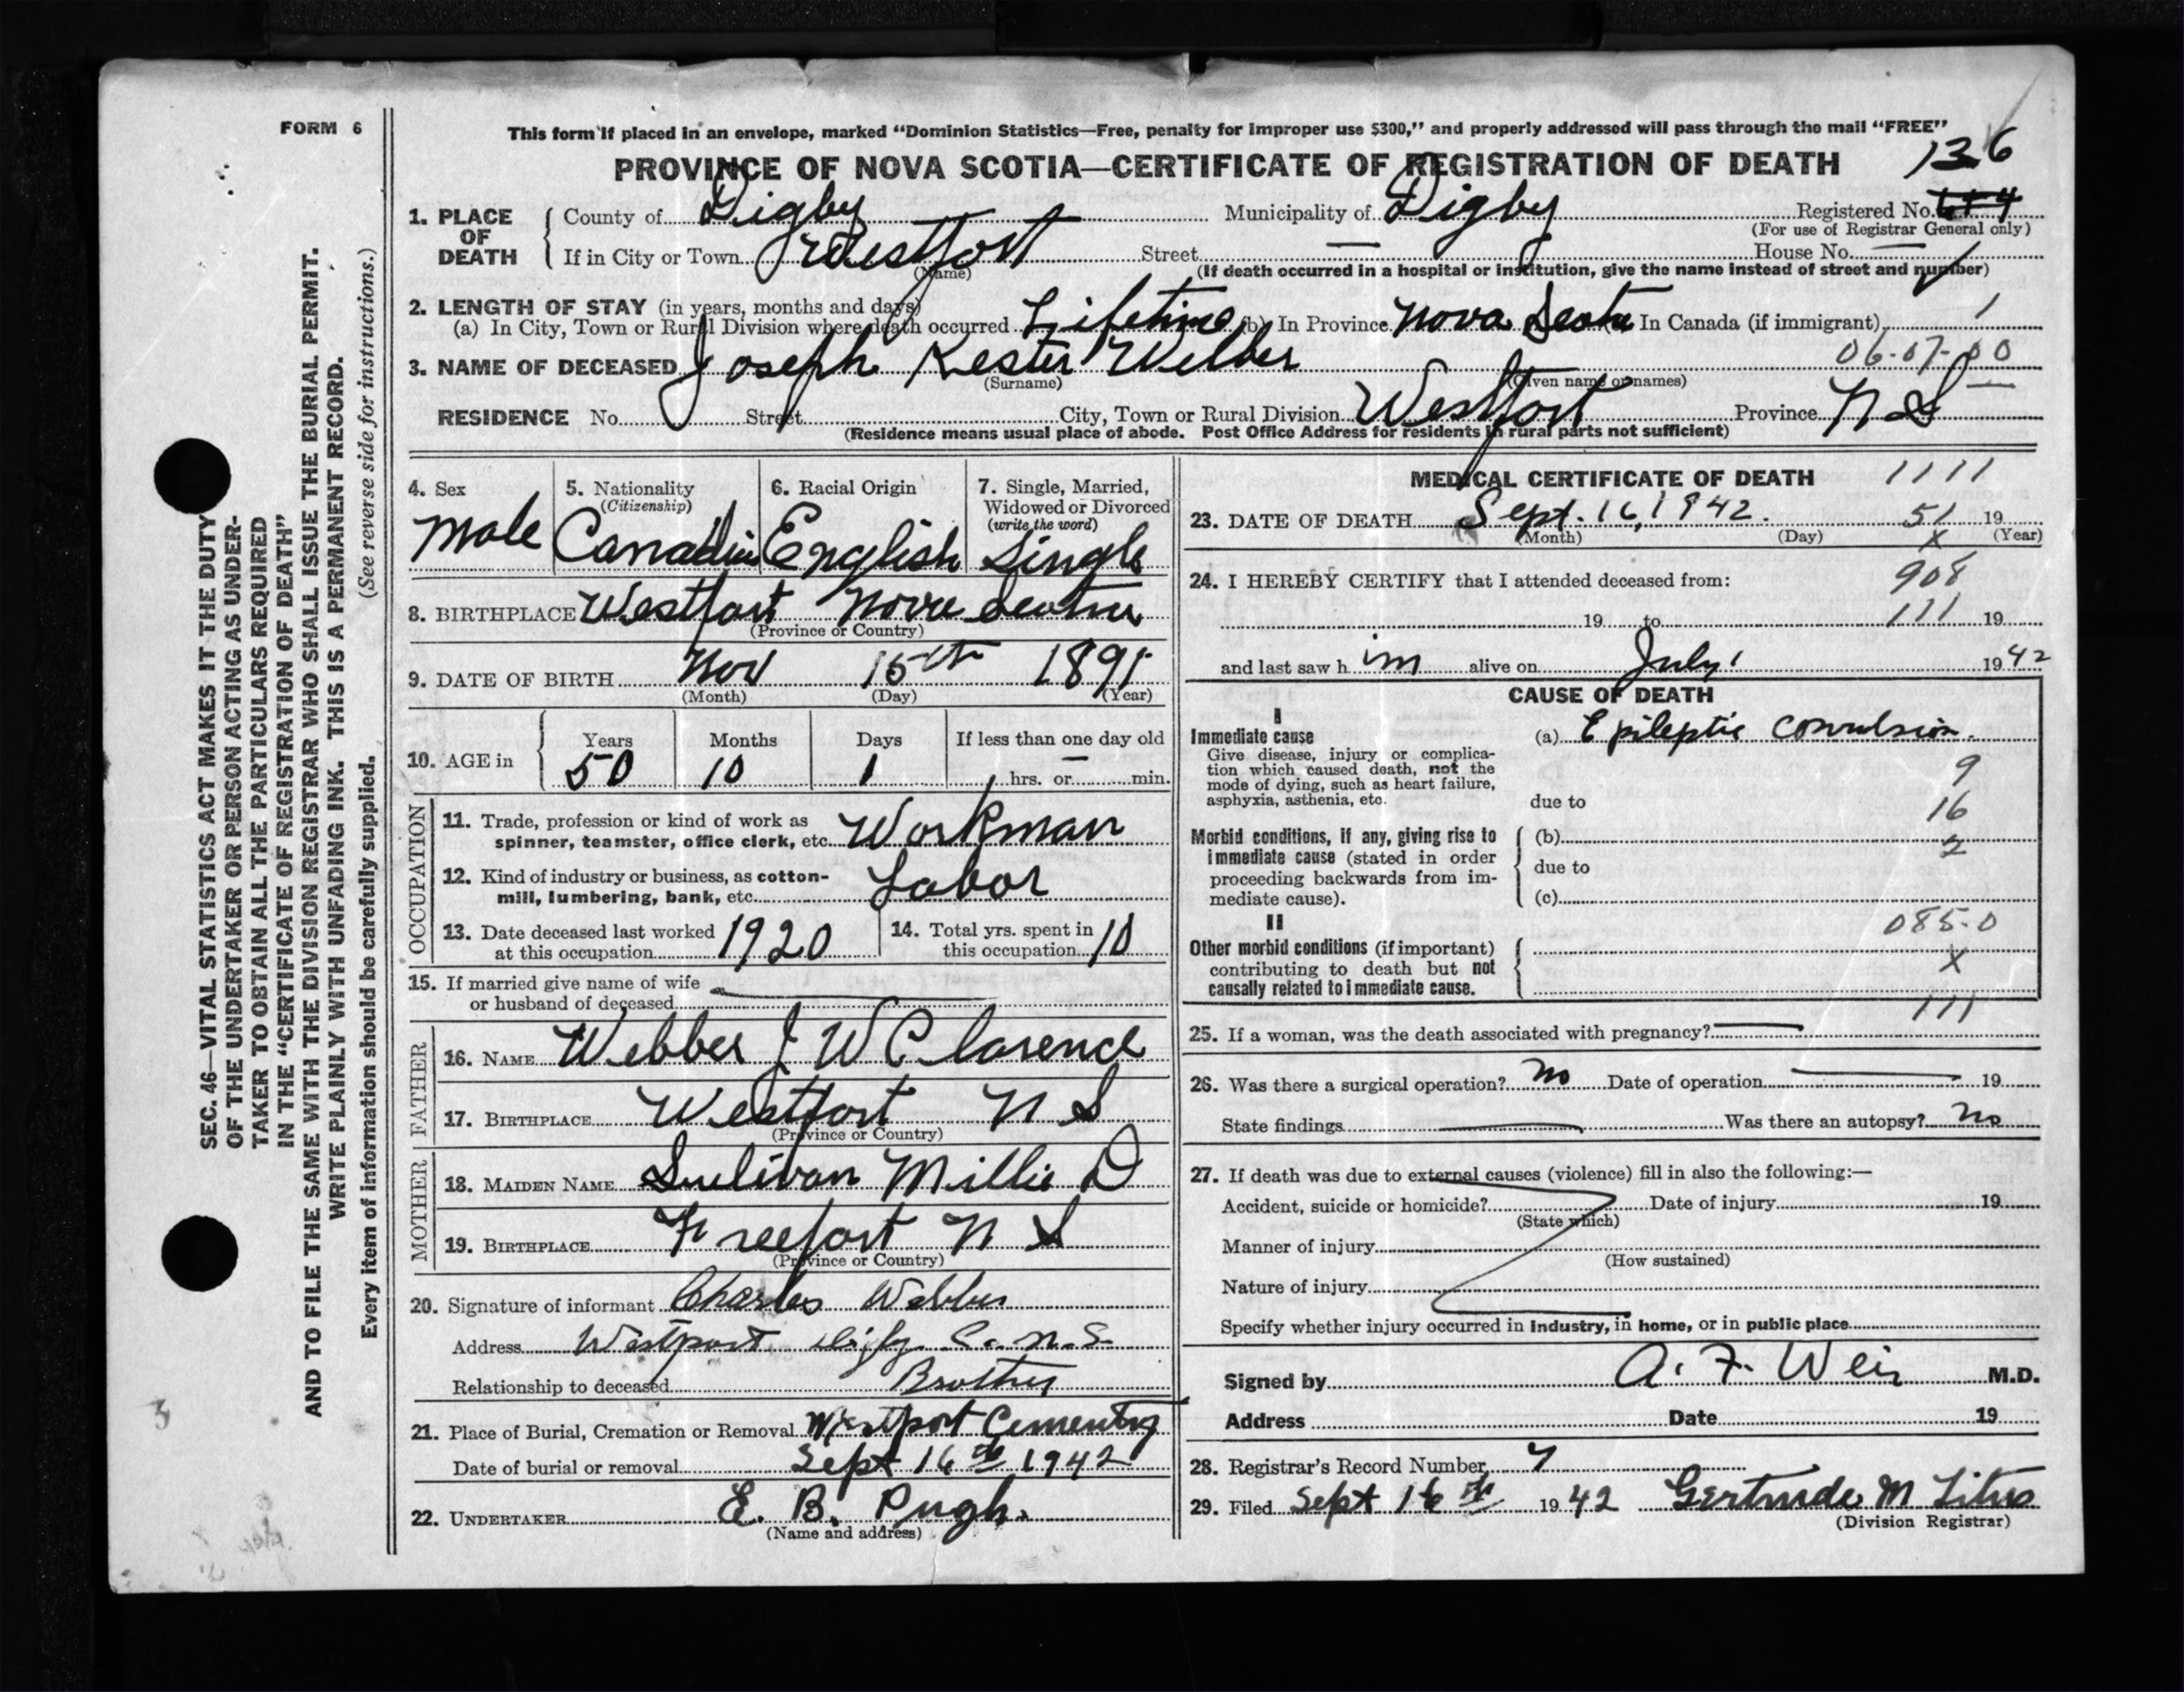 FORM 6
This form if placed in an envelope, marked "Dominion Statistics—Free, penalty for improper use $300," and properly addressed will pass through the mail "FREE"
PROVINCE OF NOVA SCOTIA—CERTIFICATE OF REGISTRATION OF DEATH 136
1. PLACE OF DEATH County of Digby Municipality of Digby Registered No.
(For use of Registrar General only)
If in City or Town Westport Street — House No. —
(Name) (If death occurred in a hospital or institution, give the name instead of street and number)
2. LENGTH OF STAY (in years, months and days)
(a) In City, Town or Rural Division where death occurred Lifetime (b) In Province Nova Scotia In Canada (if immigrant) 1
06-07-00
3. NAME OF DECEASED Joseph Kester Webber
(Surname) (Given name or names)
RESIDENCE No. Street City, Town or Rural Division Westport Province N S
(Residence means usual place of abode. Post Office Address for residents in rural parts not sufficient)
4. Sex Male
5. Nationality (Citizenship) Canadian
6. Racial Origin English
7. Single, Married, Widowed or Divorced (write the word) Single
8. BIRTHPLACE Westport Nova Scotia
(Province or Country)
9. DATE OF BIRTH Nov 15th 1891
(Month) (Day) (Year)
10. AGE in Years 50 Months 10 Days 1 If less than one day old — hrs. or min.
OCCUPATION
11. Trade, profession or kind of work as spinner, teamster, office clerk, etc. Workman
12. Kind of industry or business, as cotton-mill, lumbering, bank, etc. Labor
13. Date deceased last worked at this occupation 1920
14. Total yrs. spent in this occupation 10
15. If married give name of wife or husband of deceased —
FATHER
16. NAME Webber J W Clarence
17. BIRTHPLACE Westport N S
(Province or Country)
MOTHER
18. MAIDEN NAME Sulivan Millie D
19. BIRTHPLACE Freeport N S
(Province or Country)
20. Signature of informant Charles Webber
Address Westport Digby Co. N.S.
Relationship to deceased Brother
21. Place of Burial, Cremation or Removal Westport Cementry
Date of burial or removal Sept 16th 1942
22. UNDERTAKER E. B. Pugh.
(Name and address)
MEDICAL CERTIFICATE OF DEATH 1111
23. DATE OF DEATH Sept. 16, 1942. 51 19
(Month) (Day) X (Year)
24. I HEREBY CERTIFY that I attended deceased from: 908
19 to 111 19
and last saw h im alive on July 1 1942
CAUSE OF DEATH
I
Immediate cause (a) Epileptic convulsion.
Give disease, injury or complication which caused death, not the mode of dying, such as heart failure, asphyxia, asthenia, etc.
9
due to 16
Morbid conditions, if any, giving rise to immediate cause (stated in order proceeding backwards from immediate cause).
(b) 2
due to
(c)
II
085.0
Other morbid conditions (if important) contributing to death but not causally related to immediate cause.
X
111
25. If a woman, was the death associated with pregnancy? —
26. Was there a surgical operation? No Date of operation — 19
State findings — Was there an autopsy? No
27. If death was due to external causes (violence) fill in also the following:—
Accident, suicide or homicide? Date of injury 19
(State which)
Manner of injury
(How sustained)
Nature of injury
Specify whether injury occurred in industry, in home, or in public place
Signed by A. F. Weir M.D.
Address Date 19
28. Registrar's Record Number 7
29. Filed Sept 16th 1942 Gertrude M Titus
(Division Registrar)
SEC. 46—VITAL STATISTICS ACT MAKES IT THE DUTY
OF THE UNDERTAKER OR PERSON ACTING AS UNDER-
TAKER TO OBTAIN ALL THE PARTICULARS REQUIRED
IN THE "CERTIFICATE OF REGISTRATION OF DEATH"
AND TO FILE THE SAME WITH THE DIVISION REGISTRAR WHO SHALL ISSUE THE BURIAL PERMIT.
WRITE PLAINLY WITH UNFADING INK. THIS IS A PERMANENT RECORD.
Every item of information should be carefully supplied. (See reverse side for instructions.)